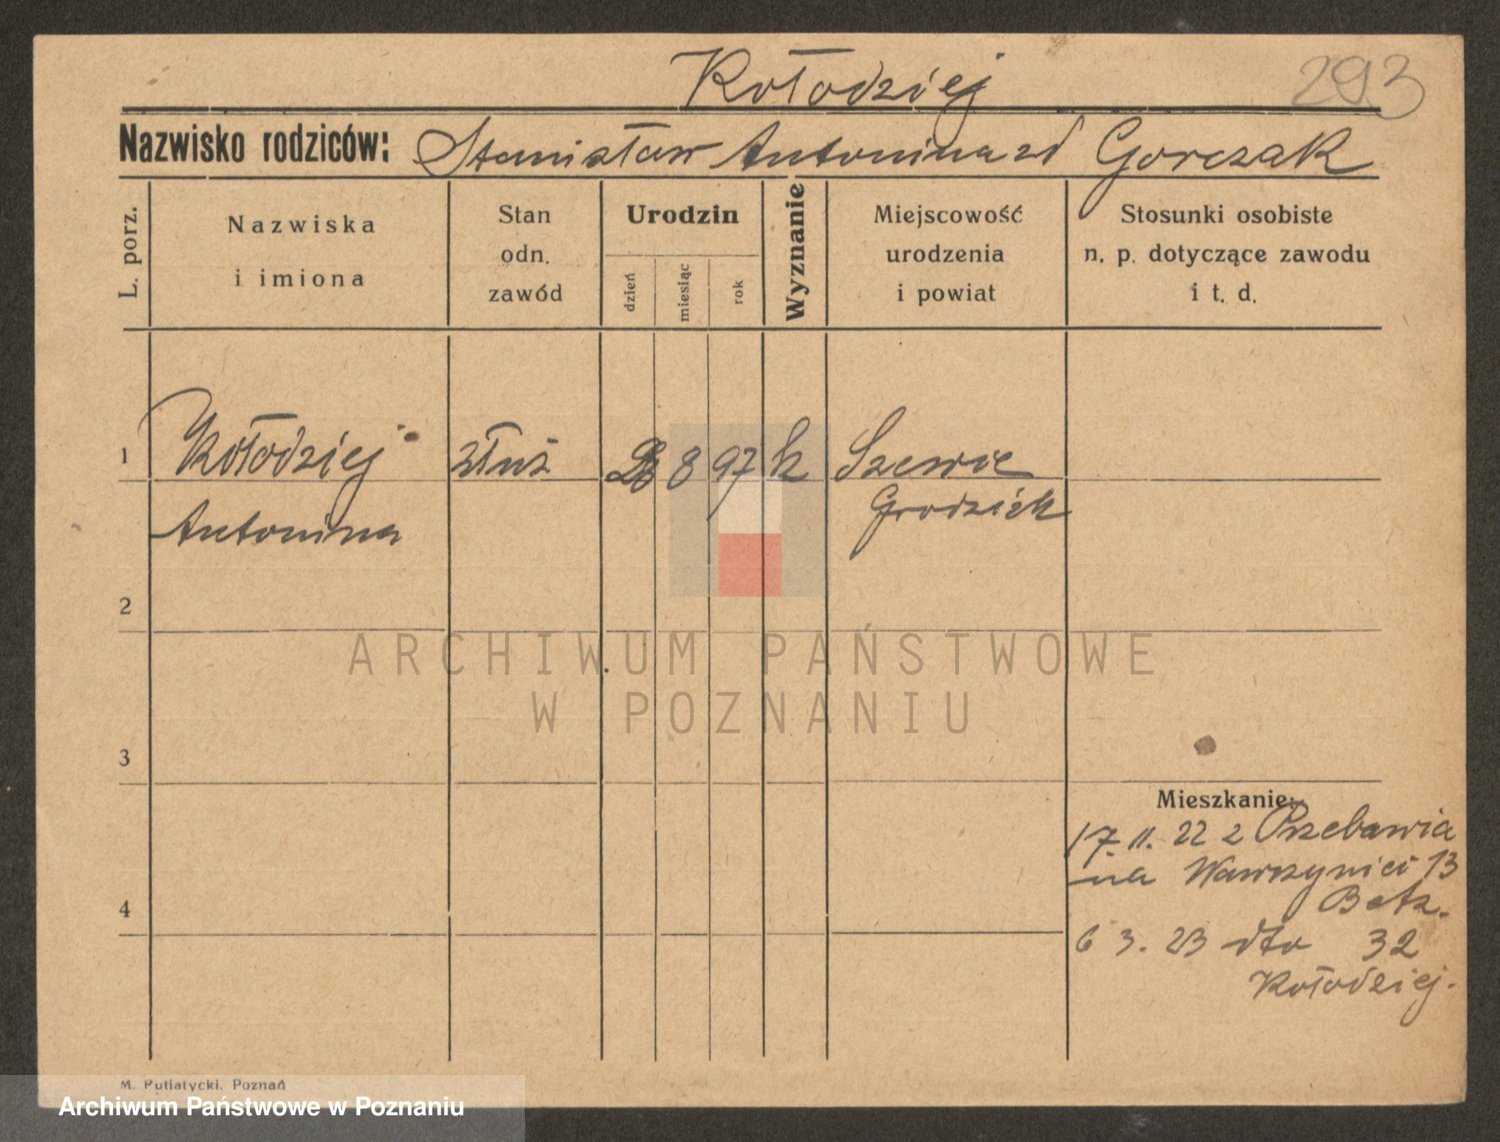 Kołodziej
293
Nazwisko rodziców: Stanisław Antonina zd Gorczak
L. porz.
Nazwiska
i imiona
Stan
odn.
zawód
Urodzin
dzień
miesiąc
rok
Wyznanie
Miejscowość
urodzenia
i powiat
Stosunki osobiste
n. p. dotyczące zawodu
i t. d.
1 Kołodziej służ 8 97 k Szewce
Antonina Grodzisk
2
3
4
ARCHIWUM PAŃSTWOWE
W POZNANIU
Mieszkanie:
17. 11. 22 z
na Wawrzyniec 13
6 3. 23 dto 32
Kołodziej.
M. Putiatycki. Poznań
Archiwum Państwowe w Poznaniu